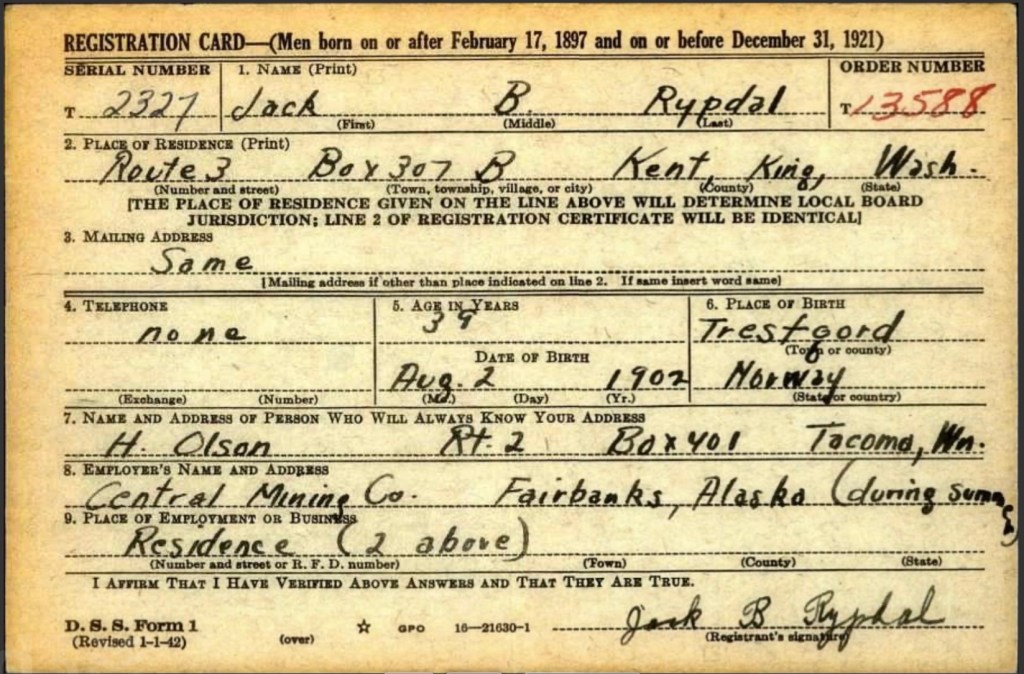 REGISTRATION CARD—(Men born on or after February 17, 1897 and on or before December 31, 1921)
SERIAL NUMBER 1. NAME (Print) ORDER NUMBER
T 2327 Jack B. Rypdal T 13588
(First) (Middle) (Last)
2. PLACE OF RESIDENCE (Print)
Route 3 Box 307 B Kent, King, Wash.
(Number and street) (Town, township, village, or city) (County) (State)
[THE PLACE OF RESIDENCE GIVEN ON THE LINE ABOVE WILL DETERMINE LOCAL BOARD
JURISDICTION; LINE 2 OF REGISTRATION CERTIFICATE WILL BE IDENTICAL]
3. MAILING ADDRESS
Same
[Mailing address if other than place indicated on line 2. If same insert word same]
4. TELEPHONE 5. AGE IN YEARS 6. PLACE OF BIRTH
none 39 Trestfjord
(Town or county)
DATE OF BIRTH
Aug. 2 1902 Norway
(Exchange) (Number) (Mo.) (Day) (Yr.) (State or country)
7. NAME AND ADDRESS OF PERSON WHO WILL ALWAYS KNOW YOUR ADDRESS
H. Olson Rt. 2 Box 401 Tacoma, Wn.
8. EMPLOYER'S NAME AND ADDRESS
Central Mining Co. Fairbanks, Alaska (during summer)
9. PLACE OF EMPLOYMENT OR BUSINESS
Residence (2 above)
(Number and street or R. F. D. number) (Town) (County) (State)
I AFFIRM THAT I HAVE VERIFIED ABOVE ANSWERS AND THAT THEY ARE TRUE.
Jack B Rypdal
D. S. S. Form 1
(Revised 1-1-42) (over) ☆ GPO 16—21630-1 (Registrant's signature)